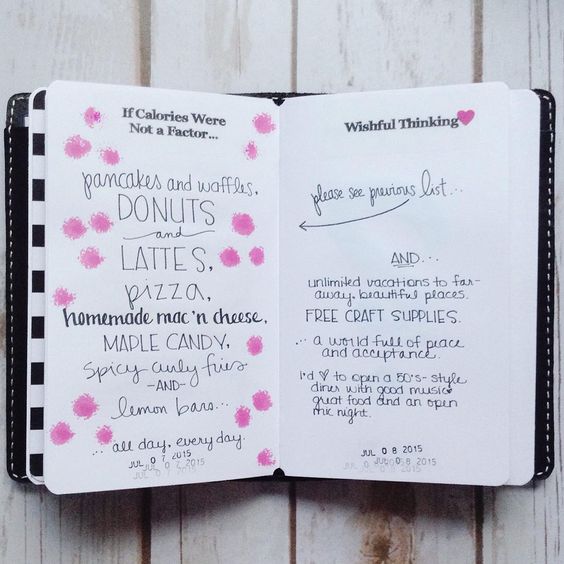 If Calories Were
Not a Factor...
pancakes and waffles,
DONUTS
and
LATTES,
pizza,
homemade mac 'n cheese,
MAPLE CANDY,
spicy curly fries
-AND-
lemon bars...
... all day, every day.
JUL 07 2015
JUL 07 2015
JUL 07 2015
Wishful Thinking
please see previous list...
AND...
unlimited vacations to far-
away, beautiful places.
FREE CRAFT SUPPLIES.
... a world full of peace
and acceptance.
I'd ♡ to open a 50's-style
diner with good music,
great food and an open
mic night.
JUL 08 2015
JUL 08 2015
JUL 08 2015